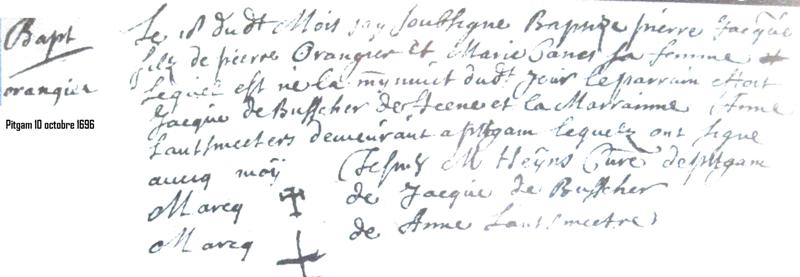 Bapt
orangier
Pitgam 10 octobre 1696
Le 18 dudt Mois jay soubsigne Baptize pierre Jacque
filz de pierre Orangier et Marie Canes sa femme
lequel est ne la mynuit dudt Jour le parrain estoit
Jacque de Busscher de steene et la Marrainne Anne
Lautsmeeters demeurant a pitgam lequelz ont signe
avecq moÿ M Heÿns Curé de pitgam
Marcq de Jacque de Busscher
Marcq de Anne Lautsmeetre